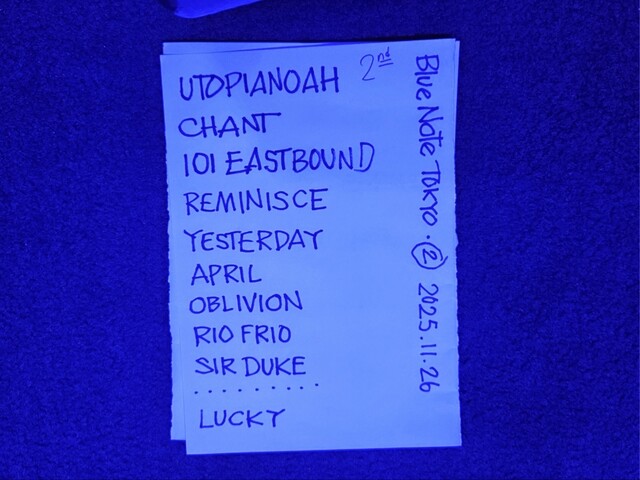 UTOPIANOAH
2nd
CHANT
101 EASTBOUND
REMINISCE
YESTERDAY
APRIL
OBLIVION
RIO FRIO
SIR DUKE
. . . . . . . . .
LUCKY
Blue Note TOKYO . ② 2025.11.26